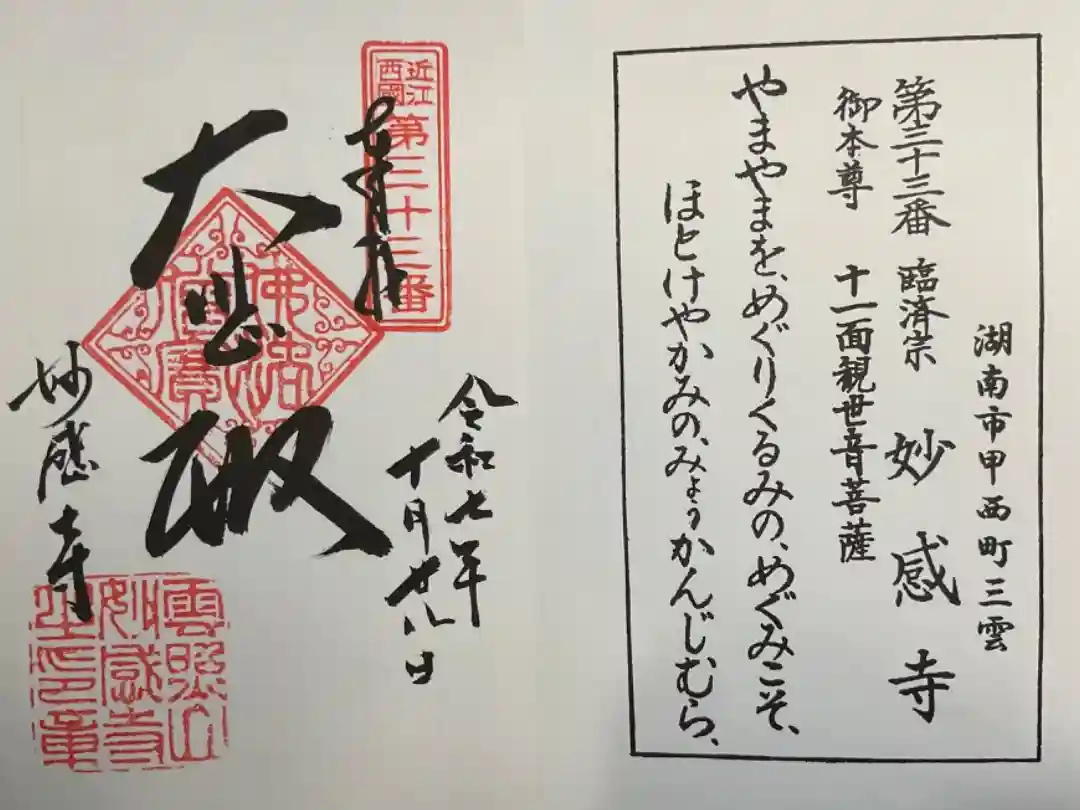 湖南市甲西町三雲
第三十三番 臨済宗 妙感寺
御本尊 十一面観世音菩薩
やまやまを、めぐりくるみの、めぐみこそ、
ほとけやかみの、みょうかんじむら、
近江
西國
第三十三番
奉拝
令和七年
十月廿八日
大悲殿
佛法僧寶
妙感寺
雲照山
妙感寺
之印章